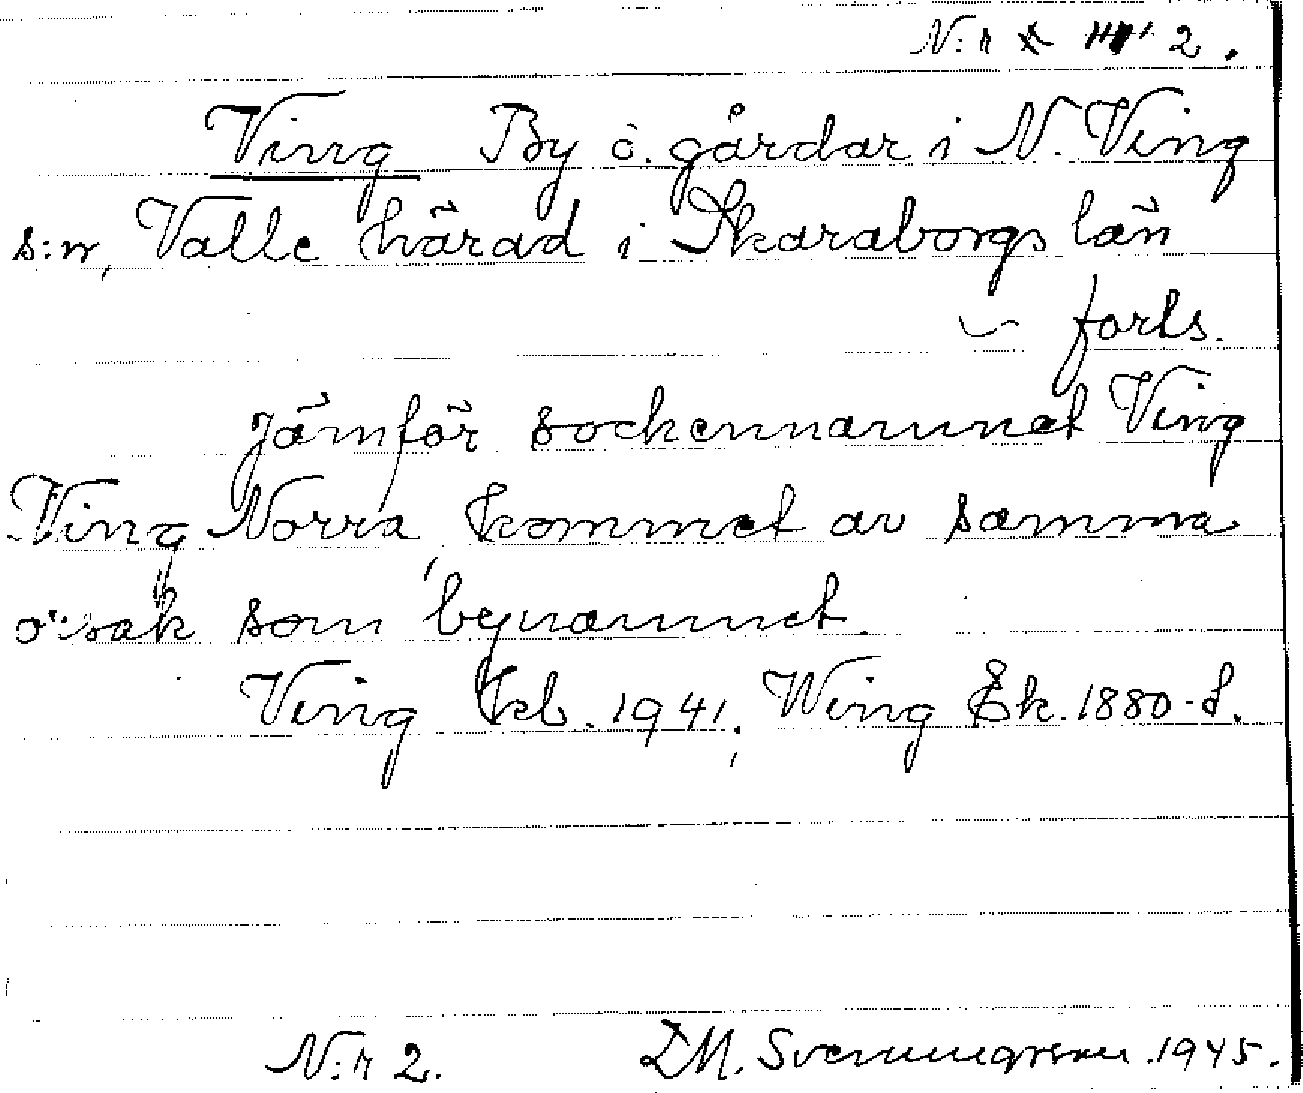 N:r 2.
Ving By o. gårdar i N. Ving
s:n, Valle härad i Skaraborgs län
forts.
Jämför sockennamnet Ving
Ving Norra, kommet av samma
orsak som bynamnet.
Ving Kb. 1941, Wing Ek. 1880-t.
N:r 2. M. Svenungsson. 1945.